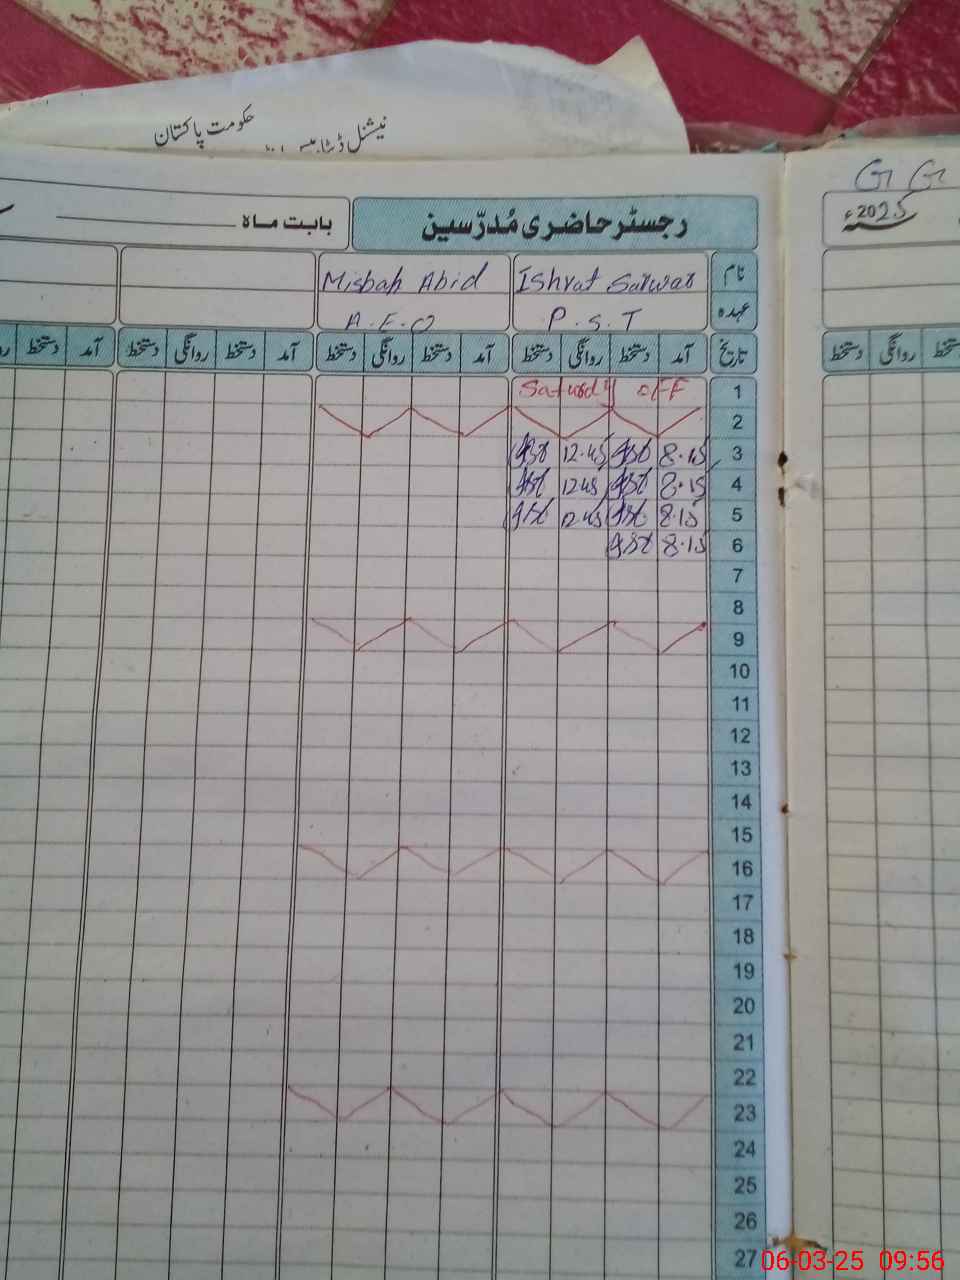 حکومت پاکستان
نیشنل ڈیٹا بیس
G G
2025ء
رجسٹر حاضری مُدرّسین
بابت ماہ
نام Ishrat Sarwar Misbah Abid
عہدہ P.S.T A.E.O
تاریخ آمد دستخط روانگی دستخط آمد دستخط روانگی دستخط آمد دستخط روانگی دستخط آمد دستخط
روانگی دستخط
1 Saturdy off
2
3 8.15 12.45
4 8.15 12 45
5 8.15 12 45
6 8.15
7
8
9
10
11
12
13
14
15
16
17
18
19
20
21
22
23
24
25
26
27
06-03-25 09:56